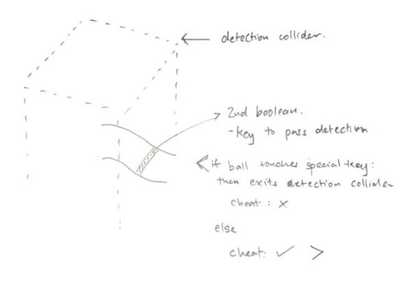 detection collider.
2nd boolean.
- key to pass detection
< if ball touches special key:
then exits detection collider
cheat: ✗
else
cheat: ✓ >